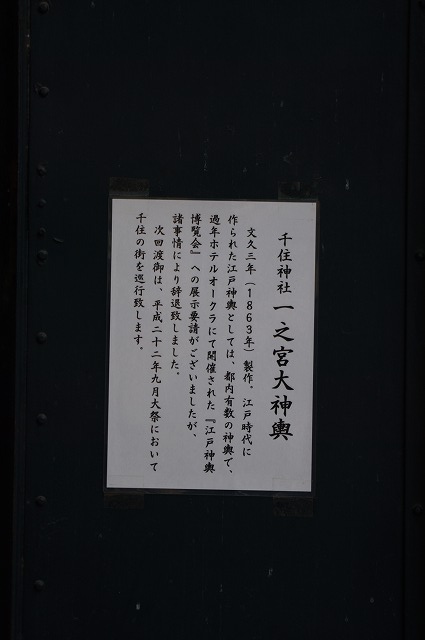 千住神社 一之宮大神輿
文久三年（1863年）製作。江戸時代に
作られた江戸神輿としては、都内有数の神輿で、
過年ホテルオークラにて開催された『江戸神輿
博覧会』への展示要請がございましたが、
諸事情により辞退致しました。
次回渡御は、平成二十二年九月大祭において
千住の街を巡行致します。